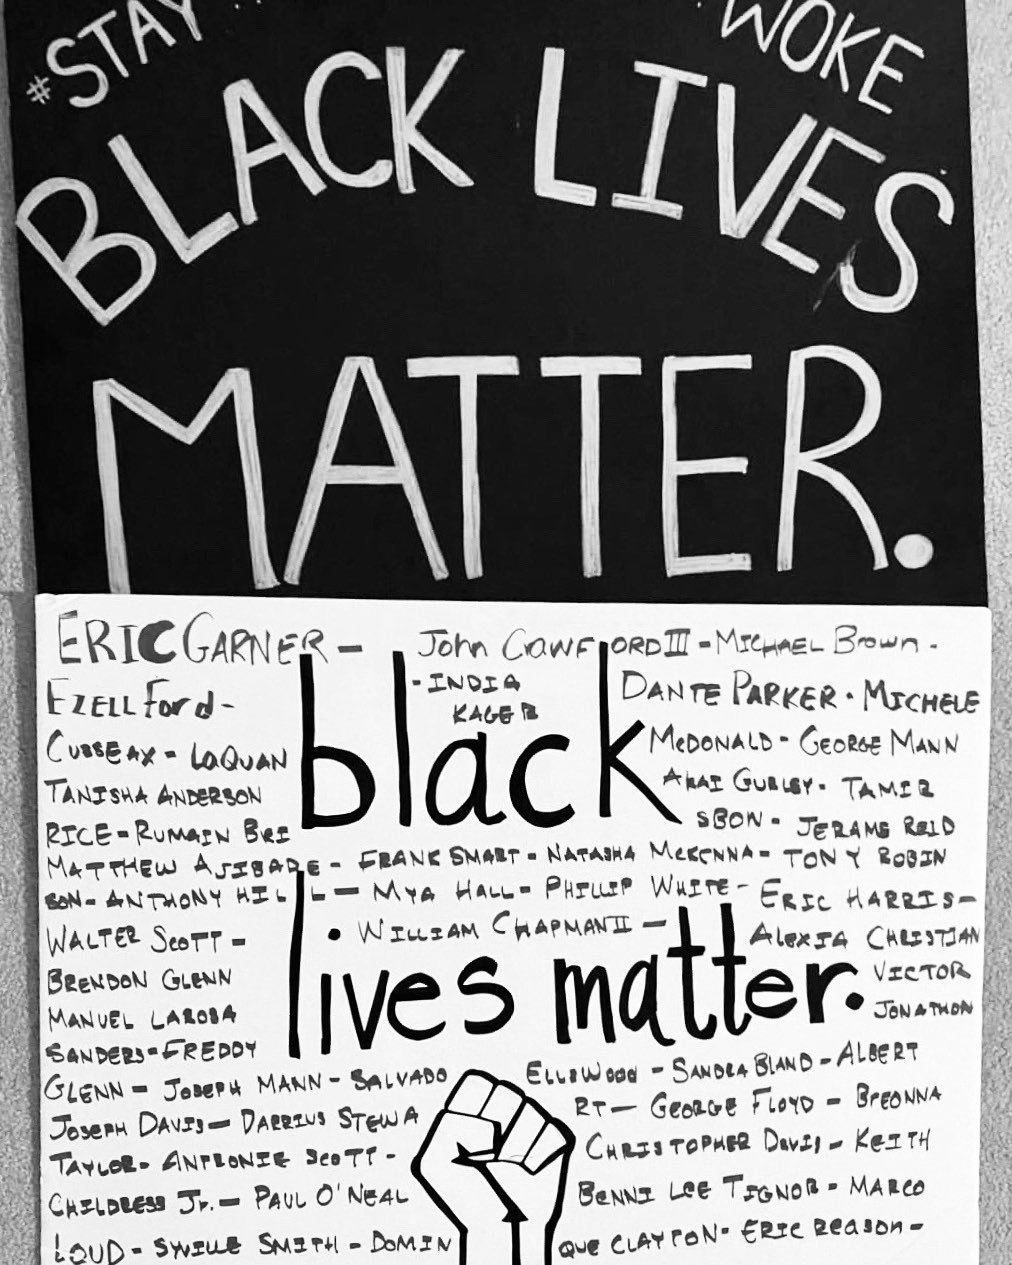 #STAY WOKE
BLACK LIVES
MATTER.
ERIC GARNER - John CRAWFORD III - MICHAEL Brown -
EZELL Ford - - INDIA DANTE PARKER - MICHELE
KAGER
black
CUSSEAX - LAQUAN McDONALD - GEORGE MANN
TANISHA ANDERSON AKAI GURLEY - TAMIR
RICE - RUMAIN BRI SBON - JERAME REID
MATTHEW AJIBADE - FRANK SMART - NATASHA McKENNA - TONY ROBIN
SON - ANTHONY HILL - MYA HALL - PHILLIP WHITE - ERIC HARRIS -
WALTER SCOTT - • WILLIAM CHAPMAN II - ALEXIA CHRISTIAN
lives matter.
BRENDON GLENN VICTOR
MANUEL LAROSA JONATHON
SANDERS - FREDDY
GLENN - JOSEPH MANN - SALVADO ELLSWOOD - SANDRA BLAND - ALBERT
JOSEPH DAVIS - DARRIUS STEWA RT - GEORGE FLOYD - BREONNA
TAYLOR - ANTRONIE SCOTT - CHRISTOPHER DAVIS - KEITH
CHILDRESS Jr. - PAUL O'NEAL BENNI LEE TIGNOR - MARCO
LOUD - SYVILLE SMITH - DOMIN QUE CLAYTON - ERIC REASON -